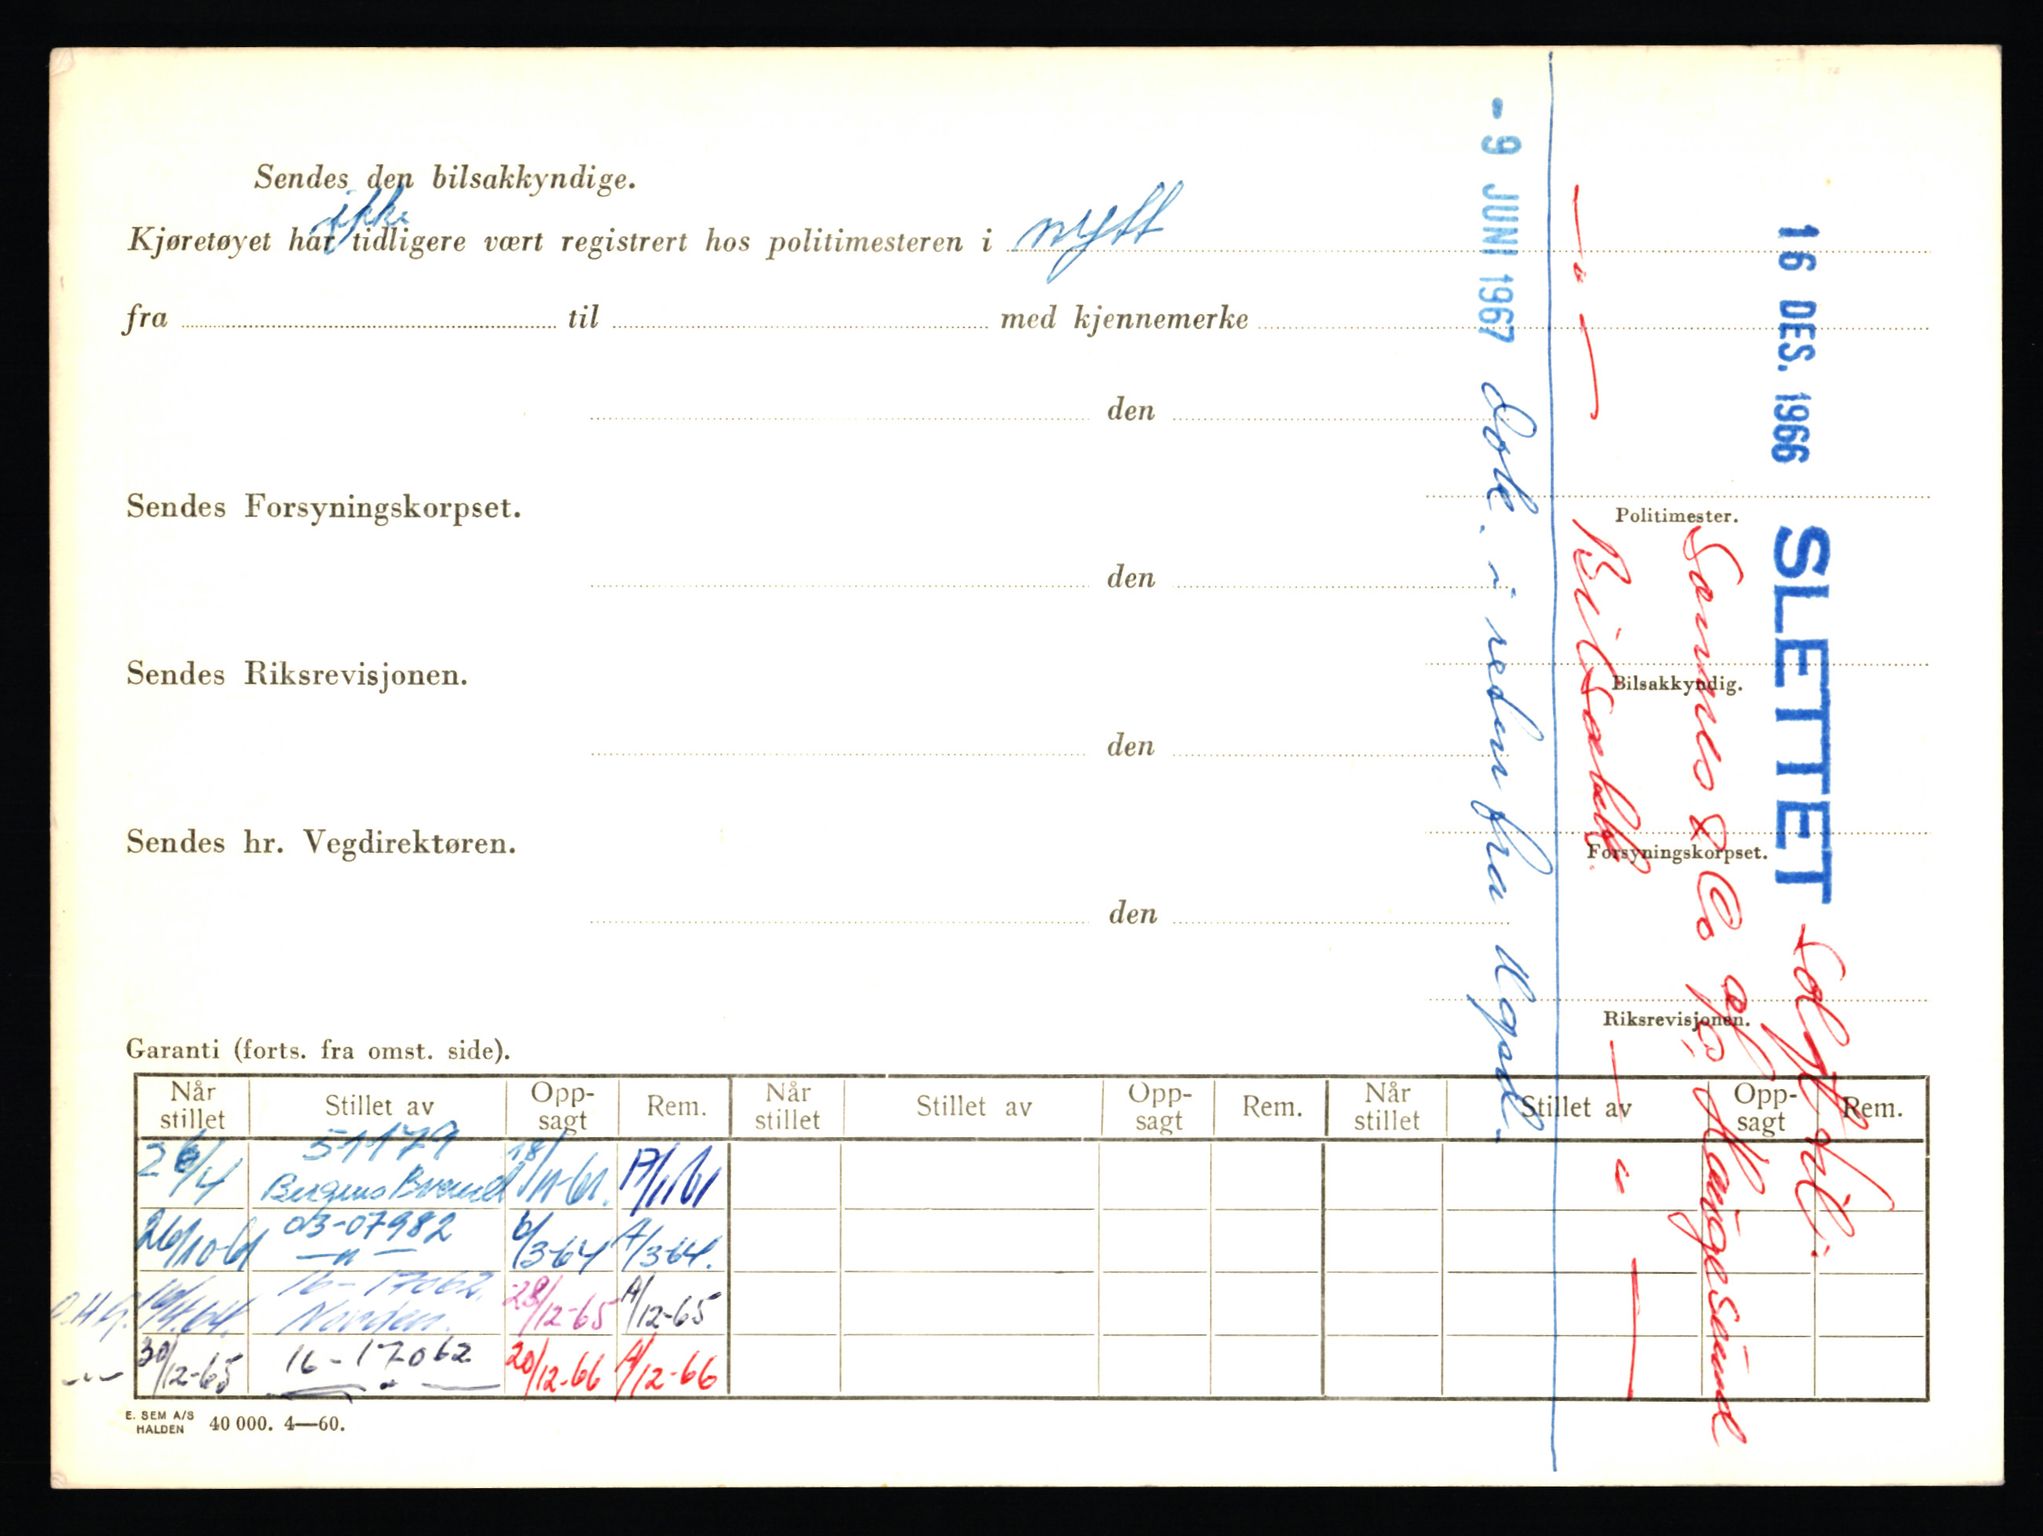 Sendes den bilsakkyndige.
ikke
Kjøretøyet har tidligere vært registrert hos politimesteren i nytt
fra til med kjennemerke
den
Sendes Forsyningskorpset.
Politimester.
den
Sendes Riksrevisjonen.
Bilsakkyndig.
den
Sendes hr. Vegdirektøren.
Forsyningskorpset.
den
Riksrevisjonen.
16 DES. 1966 SLETTET
Sannes & Co Haugesund
— " — Bilsakk. — " —
- 9 JUNI 1967 Dok. i retur fra
Garanti (forts. fra omst. side).
Når stillet Stillet av Opp-sagt Rem. Når stillet Stillet av Opp-sagt Rem. Når stillet Stillet av Opp-sagt Rem.
26/4 51179 Bergens Brand 18/11-61. 17/11-61
26/10-61 03-07982 — " — 6/3-64 A/3-64.
16-17062. Norden. 28/12-65 A/12-65
— " — 30/12-65 16-17062 — " — 20/12-66 A/12-66
E. SEM A/S HALDEN 40 000. 4—60.